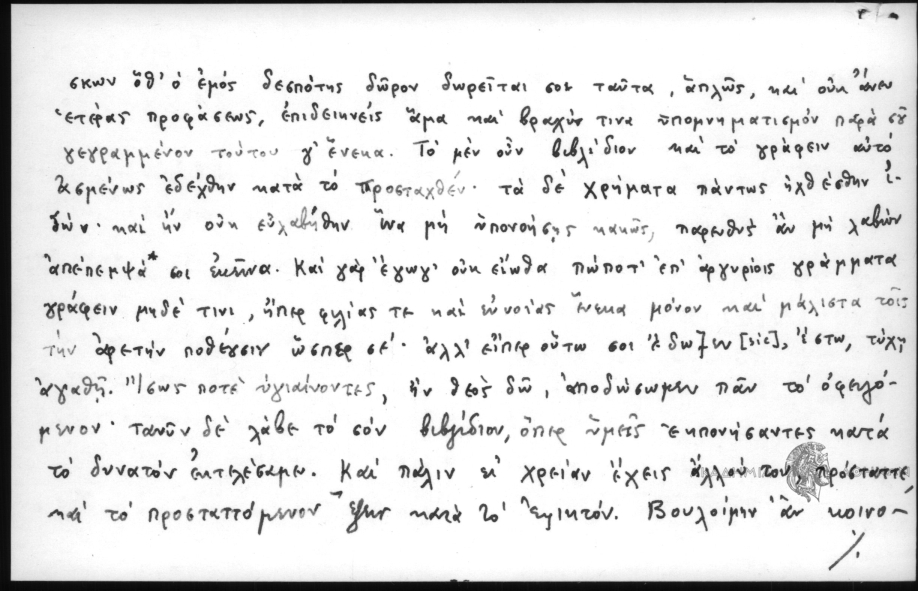 σκων ὅθ' ὁ ἐμός δεσπότης δῶρον δωρεῖται σοι ταῦτα, ἁπλῶς, καὶ οὐκ ἄνευ
ἑτέρας προφάσεως, ἐπιδεικνείς ἅμα καὶ βραχύν τινα ὑπομνηματισμόν παρὰ σοῦ
γεγραμμένον τούτου γ' ἕνεκα. Τὸ μὲν οὖν βιβλίδιον καὶ τὸ γράφειν αὐτό
ἀσμένως ἐδέχθην κατὰ τὸ προσταχθέν· τὰ δὲ χρήματα πάντως ἠχθέσθην ἰ-
δών· καὶ ἤν οὐκ εὐλαβήθην ἵνα μή ὑπονοήσῃς κακῶς, παρευθὺς ἂν μὴ λαβὼν
ἀπέπεμψά* σοι ἐκεῖνα. Καὶ γὰρ ἔγωγ' οὐκ εἴωθα πώποτ' ἐπ' ἀργυρίοις γράμματα
γράφειν μηδέ τινι, ἤπερ φιλίας τε καὶ εὐνοίας ἕνεκα μόνον καὶ μάλιστα τοῖς
τὴν ἀρετὴν ποθοῦσιν ὥσπερ σέ· ἀλλ' εἴπερ οὕτω σοι ἔδωξεν [sic], ἔστω, τύχῃ
ἀγαθῇ. Ἴσως ποτὲ ὑγιαίνοντες, ἢν θεὸς δῷ, ἀποδώσωμεν πᾶν τὸ ὀφειλό-
μενον· τανῦν δὲ λάβε τὸ σόν βιβλίδιον, ὅπερ ὑμεῖς ἐκπονήσαντες κατά
τὸ δυνατόν ἐκτελέσαμεν. Καὶ πάλιν εἰ χρείαν ἔχεις ἄλλου του, πρόσταττε
καὶ τὸ προσταττόμενον ἕξεις κατὰ τὸ ἐφικτόν. Βουλοίμην ἂν κοινο-
./.